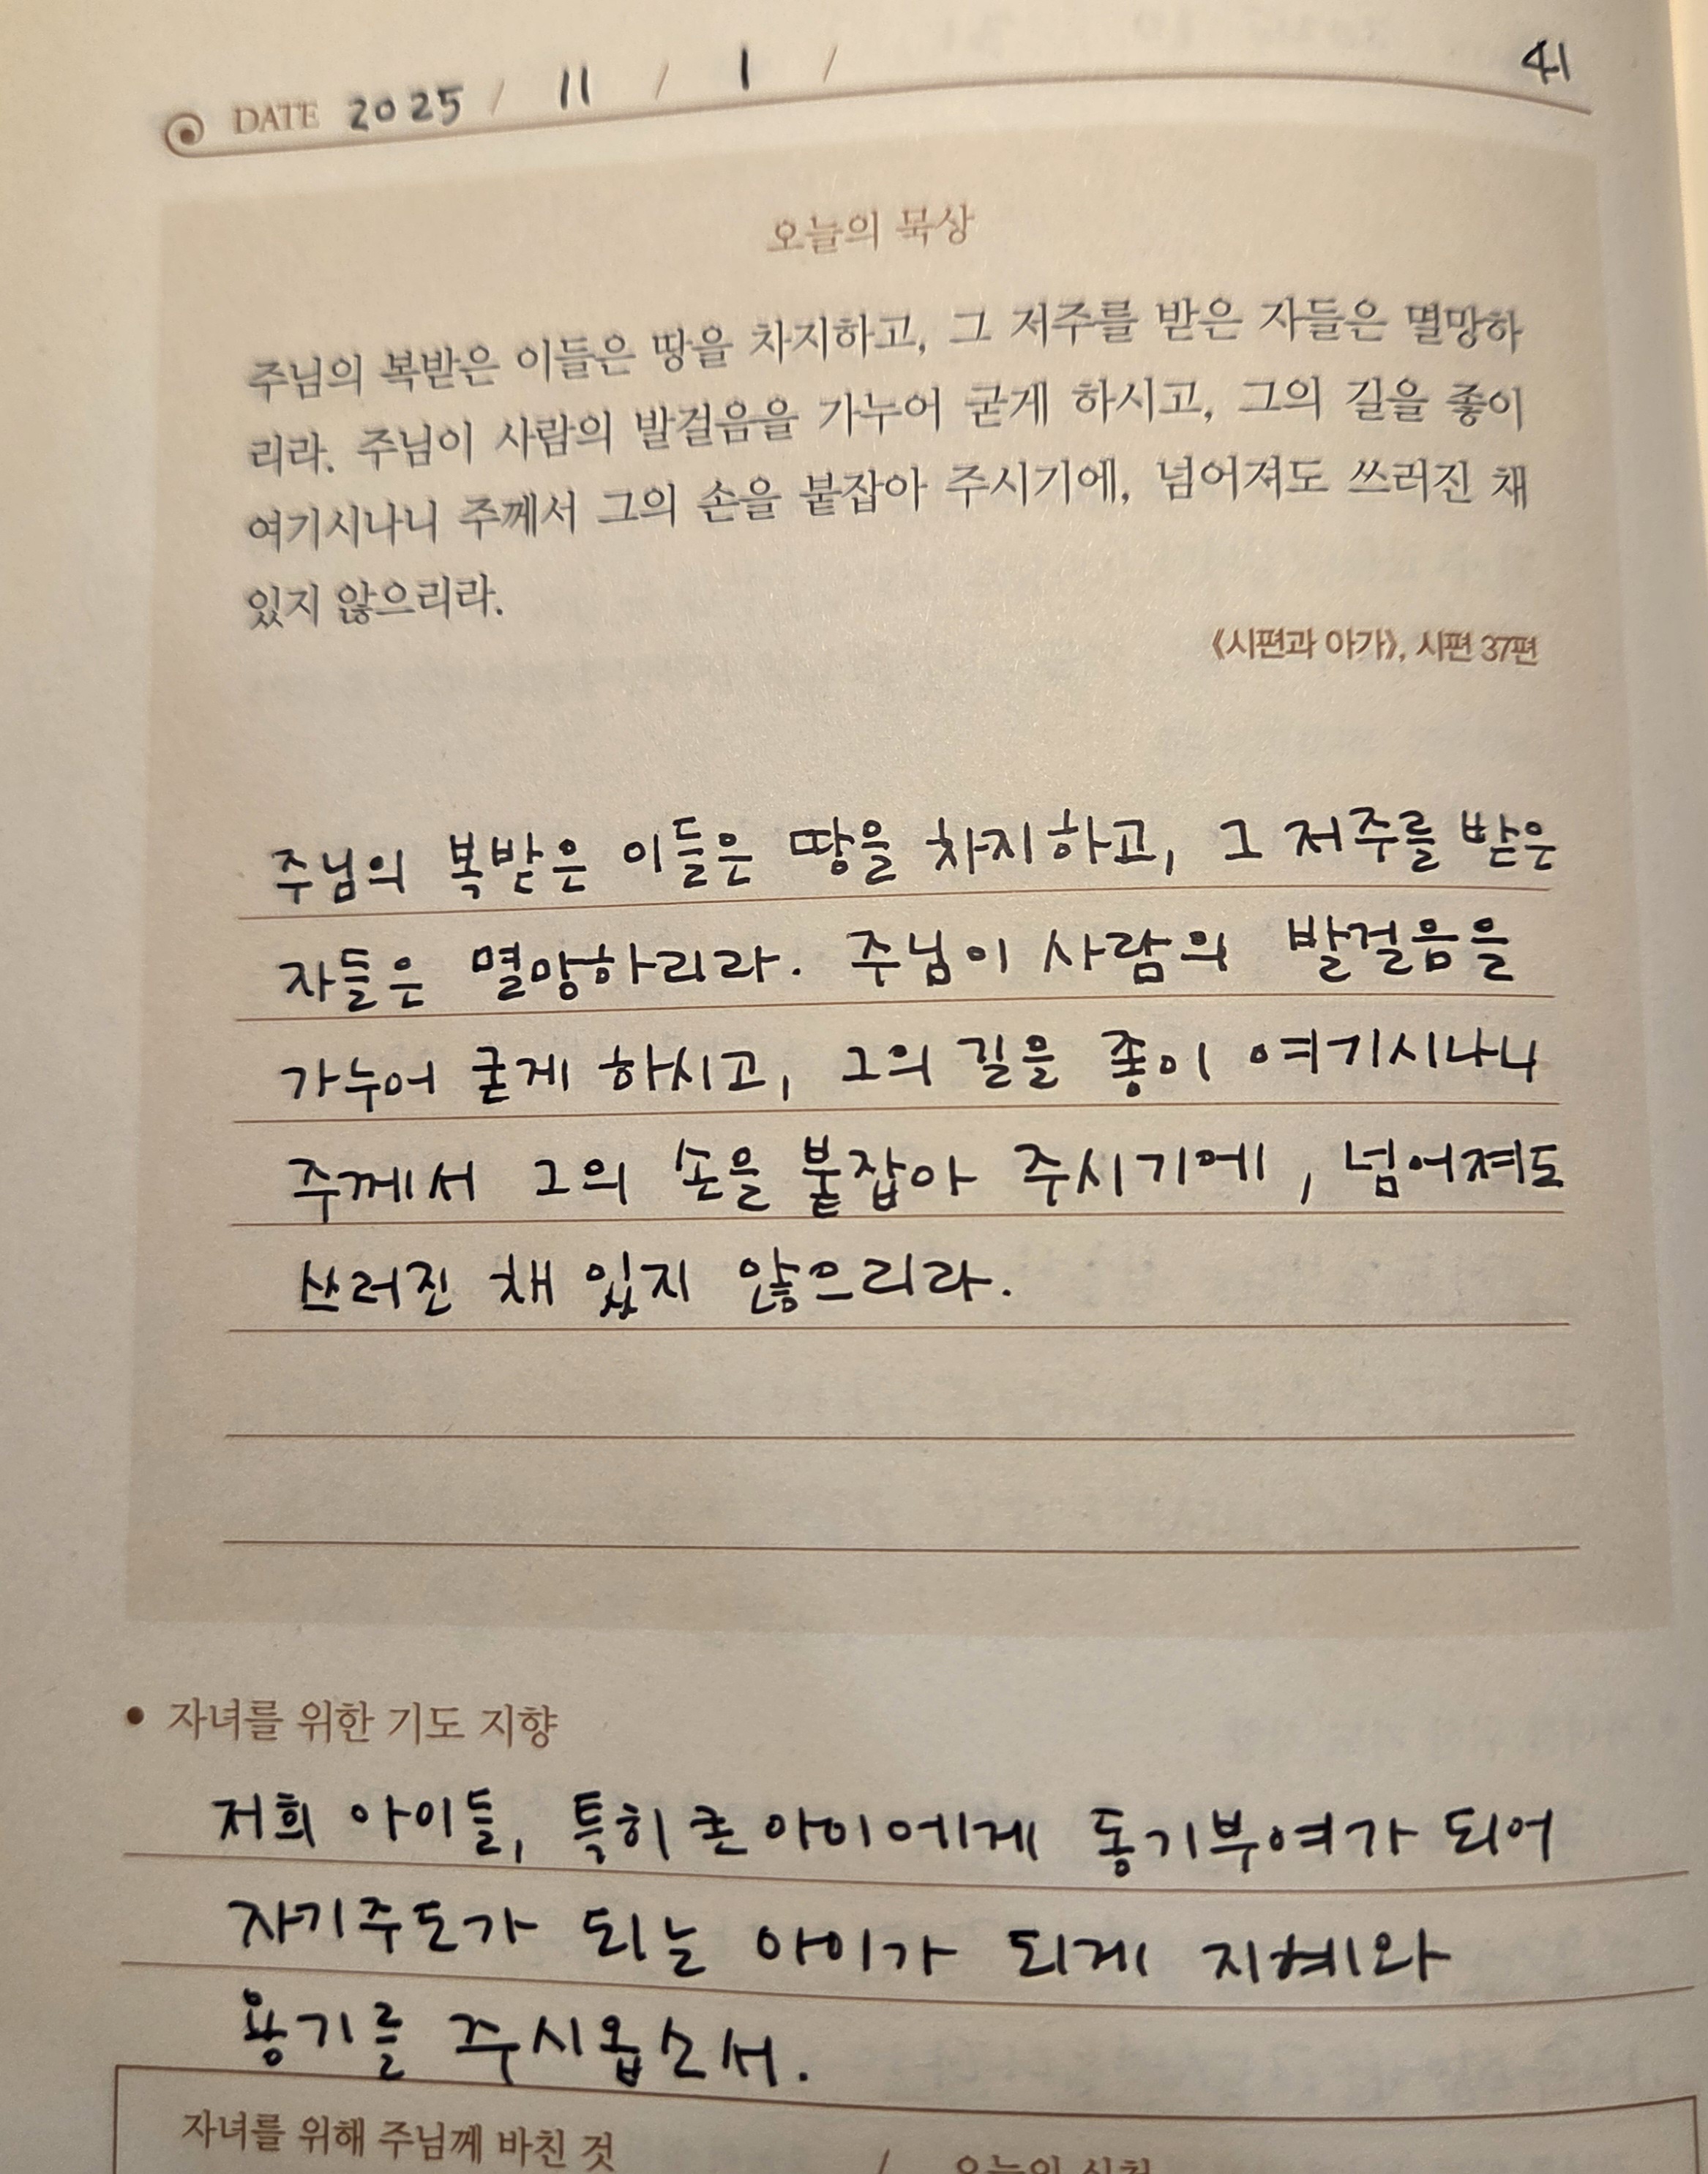 DATE 2025 / 11 / 1 /
41
오늘의 묵상
주님의 복받은 이들은 땅을 차지하고, 그 저주를 받은 자들은 멸망하
리라. 주님이 사람의 발걸음을 가누어 굳게 하시고, 그의 길을 좋이
여기시나니 주께서 그의 손을 붙잡아 주시기에, 넘어져도 쓰러진 채
있지 않으리라.
《시편과 아가》, 시편 37편
주님의 복받은 이들은 땅을 차지하고, 그 저주를 받은
자들은 멸망하리라. 주님이 사람의 발걸음을
가누어 굳게 하시고, 그의 길을 좋이 여기시나니
주께서 그의 손을 붙잡아 주시기에, 넘어져도
쓰러진 채 있지 않으리라.
• 자녀를 위한 기도 지향
저희 아이들, 특히 큰아이에게 동기부여가 되어
자기주도가 되는 아이가 되게 지혜와
용기를 주시옵소서.
자녀를 위해 주님께 바친 것 / 오늘의